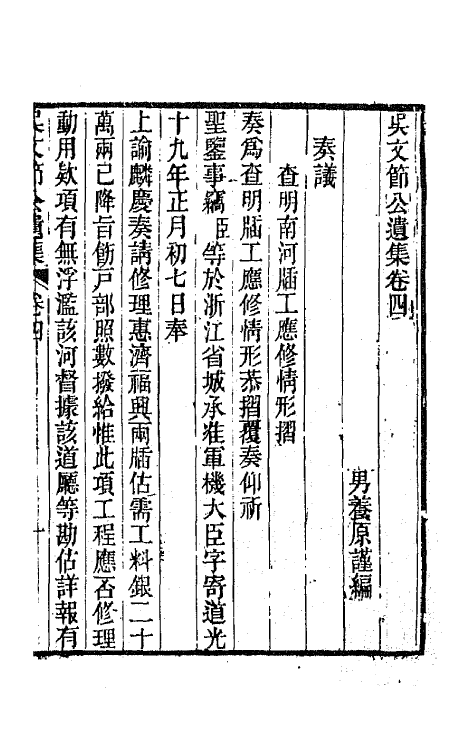 吳文節公遺集卷四
男養原謹編
奏議
查明南河牐工應修情形摺
奏爲查明牐工應修情形恭摺覆奏仰祈
聖鑒事竊臣等於浙江省城承准軍機大臣字寄道光
十九年正月初七日奉
上諭麟慶奏請修理惠濟福興兩牐估需工料銀二十
萬兩已降旨飭戶部照數撥給惟此項工程應否修理
動用欵項有無浮濫該河督據該道廳等勘估詳報有
吳文節公遺集 卷四 一